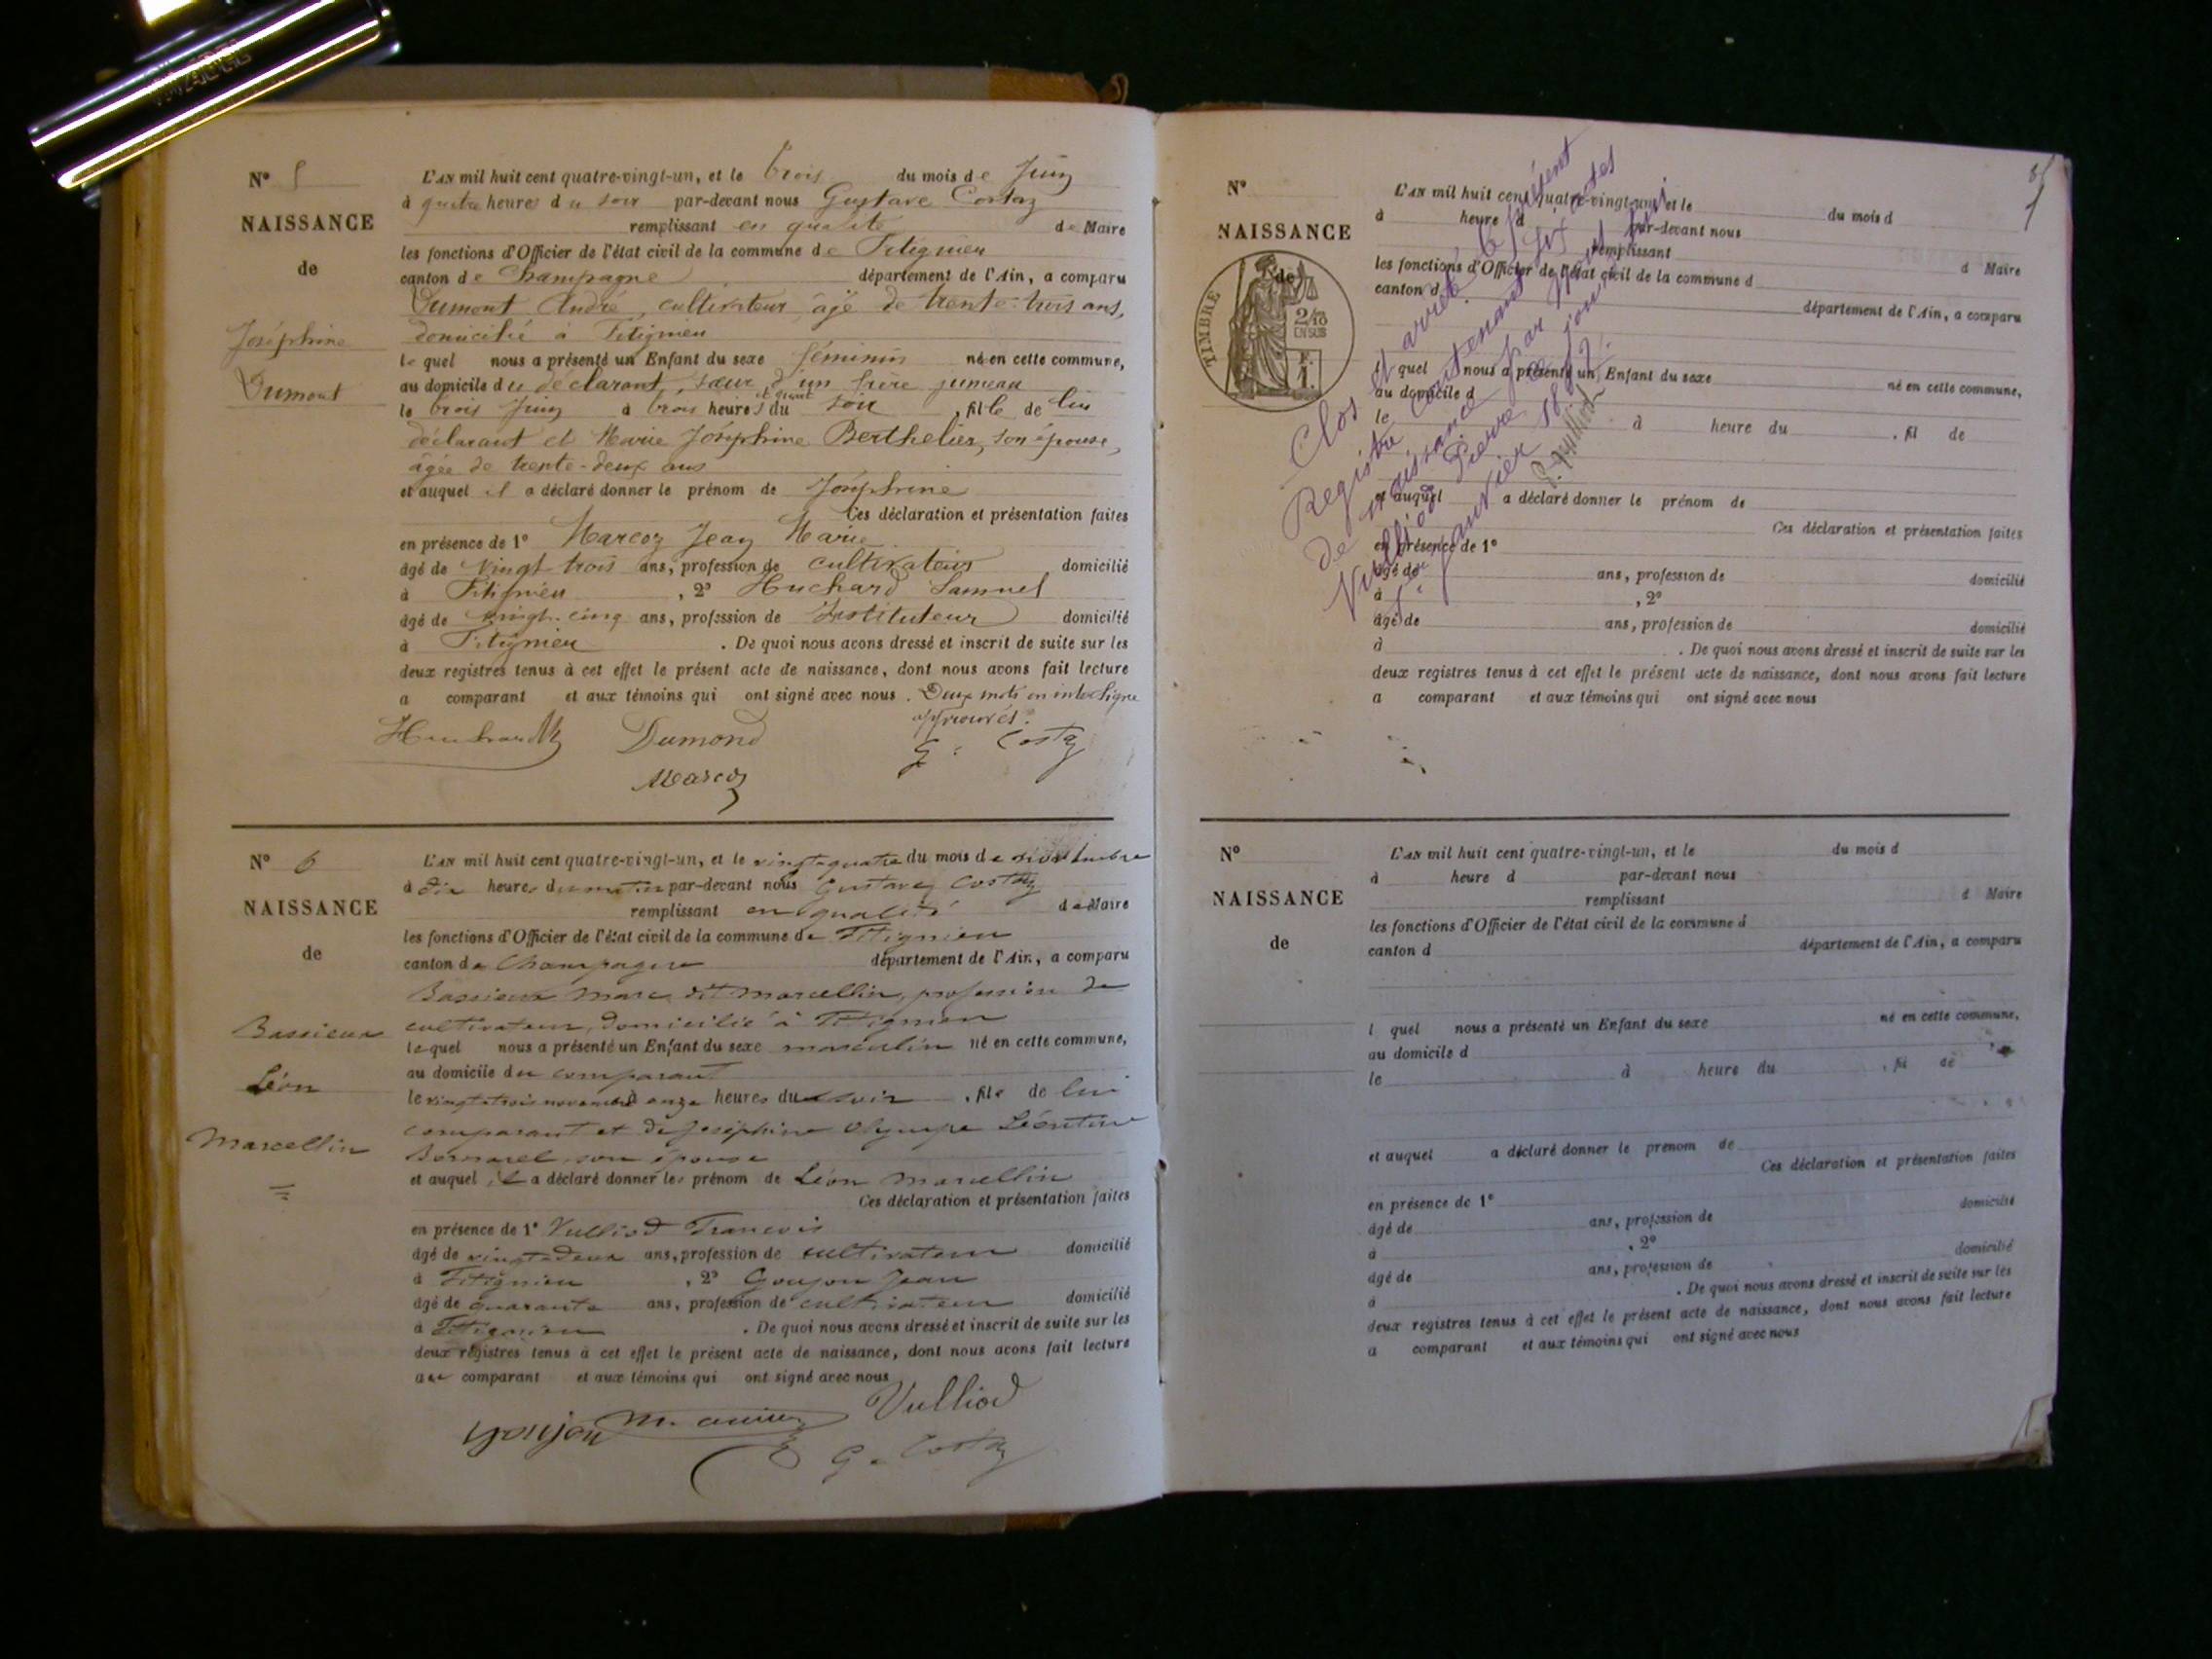 N° 5
NAISSANCE
de
Joséphine
Dumont
L'AN mil huit cent quatre-vingt-un, et le trois du mois de Juin
à quatre heures du soir par-devant nous Gustave Costaz
remplissant en qualité de Maire
les fonctions d'Officier de l'état civil de la commune de Fitignieu
canton de Champagne département de l'Ain, a comparu
Dumont André, cultivateur, âgé de trente-trois ans,
domicilié à Fitignieu
lequel nous a présenté un Enfant du sexe féminin né en cette commune,
au domicile du déclarant, sœur d'un frère jumeau
le trois Juin à trois heures et quart du soir, fille de lui
déclarant et Marie Joséphine Berthelier, son épouse,
âgée de trente-deux ans
et auquel il a déclaré donner le prénom de Joséphine
Ces déclaration et présentation faites
en présence de 1° Marcoz Jean Marie
âgé de vingt-trois ans, profession de cultivateur domicilié
à Fitignieu, 2° Huchard Samuel
âgé de vingt-cinq ans, profession de Instituteur domicilié
à Fitignieu. De quoi nous avons dressé et inscrit de suite sur les
deux registres tenus à cet effet le présent acte de naissance, dont nous avons fait lecture
a comparant et aux témoins qui ont signé avec nous. Deux mots en interligne
approuvés.
Huchard Dumond G. Costaz
Marcoz
N° 6
NAISSANCE
de
Bassieux
Léon
Marcellin
L'AN mil huit cent quatre-vingt-un, et le vingt quatre du mois de novembre
à dix heures du matin par-devant nous Gustave Costaz
remplissant en qualité de Maire
les fonctions d'Officier de l'état civil de la commune de Fitignieu
canton de Champagne département de l'Ain, a comparu
Bassieux Marc dit Marcellin, profession de
cultivateur, domicilié à Fitignieu
lequel nous a présenté un Enfant du sexe masculin né en cette commune,
au domicile du comparant
le vingt trois novembre à onze heures du soir, fils de lui
comparant et de Joséphine Olympe Léontine
son épouse
et auquel il a déclaré donner les prénom de Léon Marcellin
Ces déclaration et présentation faites
en présence de 1° Vulliod François
âgé de vingt deux ans, profession de cultivateur domicilié
à Fitignieu, 2° Goujon Jean
âgé de quarante ans, profession de cultivateur domicilié
à Fitignieu. De quoi nous avons dressé et inscrit de suite sur les
deux registres tenus à cet effet le présent acte de naissance, dont nous avons fait lecture
au comparant et aux témoins qui ont signé avec nous
Goujon Vulliod
G. Costaz
N°
NAISSANCE
de
TIMBRE
2/10
EN SUS
F.
1.
L'AN mil huit cent quatre-vingt-un, et le du mois d
à heure d par-devant nous
remplissant d Maire
les fonctions d'Officier de l'état civil de la commune d
canton d département de l'Ain, a comparu
l quel nous a présenté un Enfant du sexe né en cette commune,
au domicile d
le à heure du, fil de
et auquel a déclaré donner le prénom de
Ces déclaration et présentation faites
en présence de 1°
âgé de ans, profession de domicilié
à, 2°
âgé de ans, profession de domicilié
à. De quoi nous avons dressé et inscrit de suite sur les
deux registres tenus à cet effet le présent acte de naissance, dont nous avons fait lecture
a comparant et aux témoins qui ont signé avec nous
Clos et arrêté le présent
Registre contenant six actes
de naissance par nous
Vulliod Pierre ce jour
1er Janvier 1882.
P. Vulliod
N°
NAISSANCE
de
L'AN mil huit cent quatre-vingt-un, et le du mois d
à heure d par-devant nous
remplissant d Maire
les fonctions d'Officier de l'état civil de la commune d
canton d département de l'Ain, a comparu
l quel nous a présenté un Enfant du sexe né en cette commune,
au domicile d
le à heure du, fil de
et auquel a déclaré donner le prénom de
Ces déclaration et présentation faites
en présence de 1°
âgé de ans, profession de domicilié
à, 2°
âgé de ans, profession de domicilié
à. De quoi nous avons dressé et inscrit de suite sur les
deux registres tenus à cet effet le présent acte de naissance, dont nous avons fait lecture
a comparant et aux témoins qui ont signé avec nous